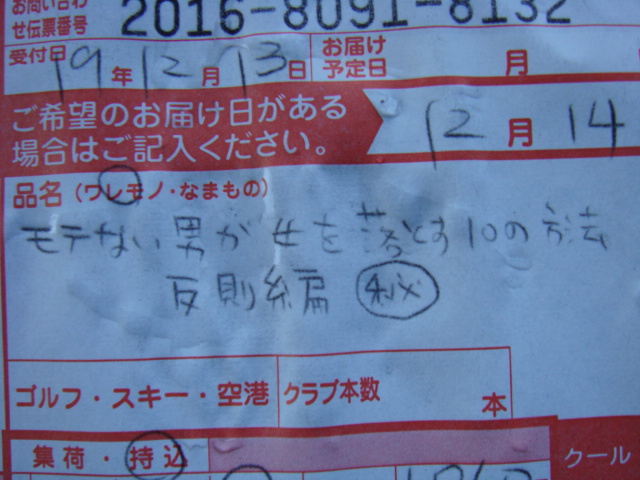 お問い合わ
せ伝票番号 2016-8091-8132
受付日 19年12月13日 お届け予定日 月
ご希望のお届け日がある
場合はご記入ください。 12月14
品名(ワレモノ・なまもの)
モテない男が女を落とす10の方法
反則編 ㊙
ゴルフ・スキー・空港 クラブ本数 本
集荷・持込 クール